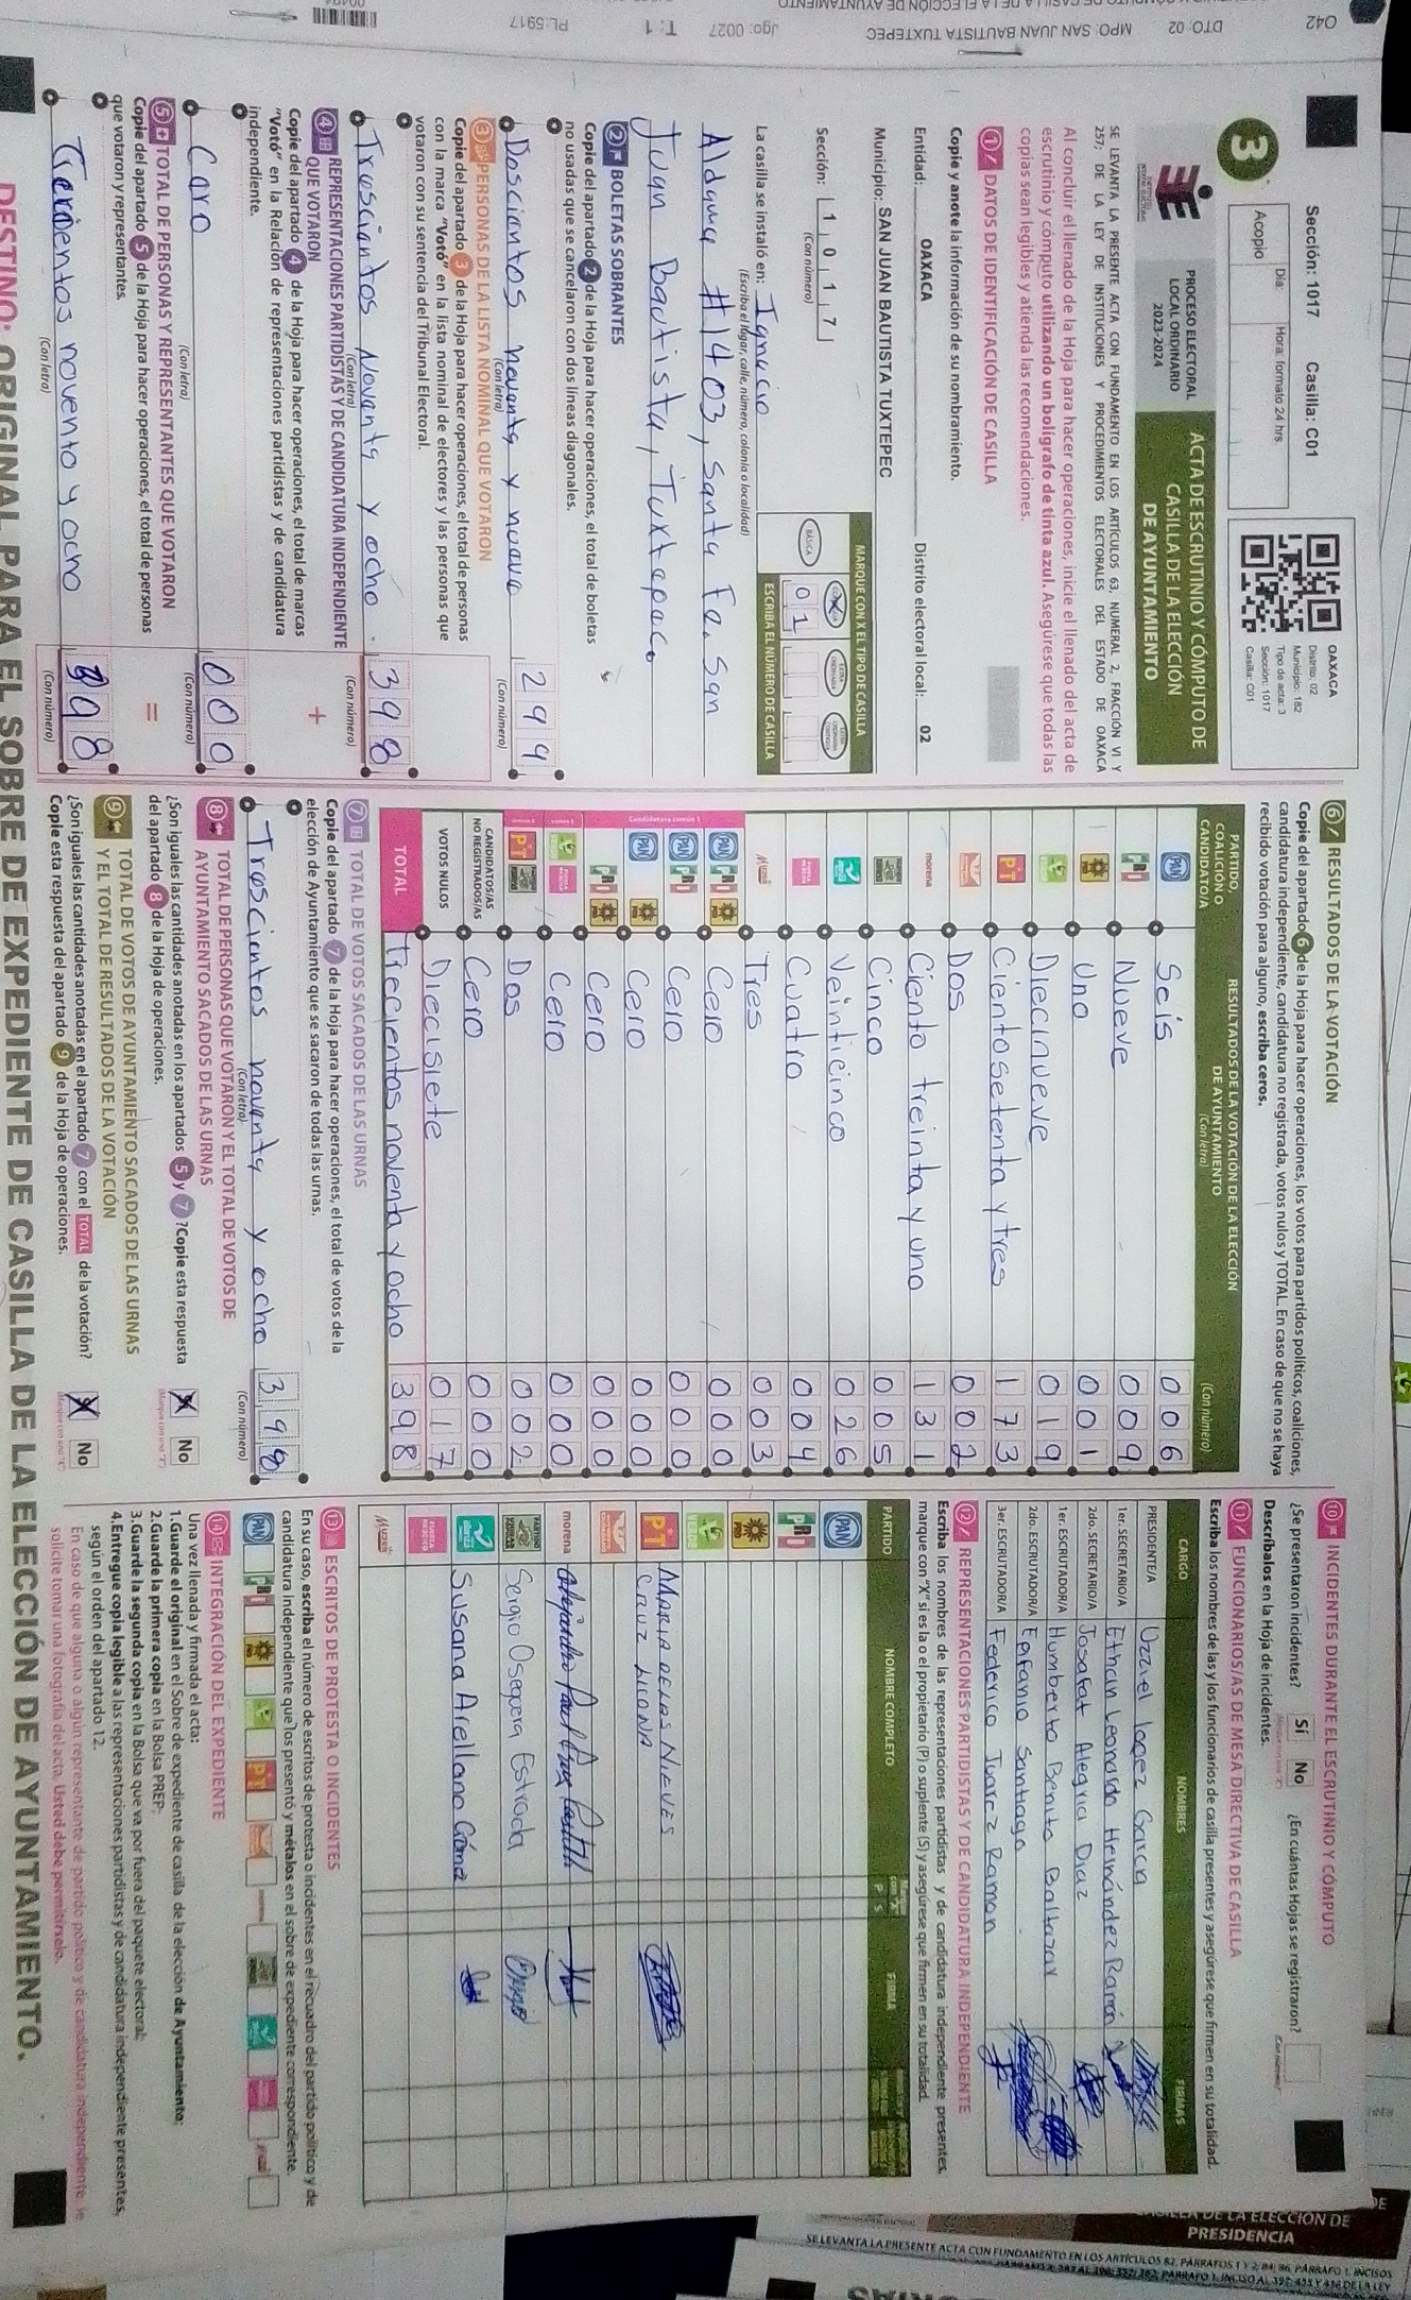 Sección: 1017 Casilla: C01
3
Día: Hora: formato 24 hrs.
Acopio
OAXACA
Distrito: 02
Municipio: 182
Tipo de acta: 3
Sección: 1017
Casilla: C01
PROCESO ELECTORAL
LOCAL ORDINARIO
2023-2024
ACTA DE ESCRUTINIO Y CÓMPUTO DE
CASILLA DE LA ELECCIÓN
DE AYUNTAMIENTO
SE LEVANTA LA PRESENTE ACTA CON FUNDAMENTO EN LOS ARTÍCULOS 63, NUMERAL 2, FRACCIÓN VI Y
257; DE LA LEY DE INSTITUCIONES Y PROCEDIMIENTOS ELECTORALES DEL ESTADO DE OAXACA
Al concluir el llenado de la Hoja para hacer operaciones, inicie el llenado del acta de
escrutinio y cómputo utilizando un bolígrafo de tinta azul. Asegúrese que todas las
copias sean legibles y atienda las recomendaciones.
1 DATOS DE IDENTIFICACIÓN DE CASILLA
Copie y anote la información de su nombramiento.
Entidad: OAXACA Distrito electoral local: 02
Municipio: SAN JUAN BAUTISTA TUXTEPEC
MARQUE CON X EL TIPO DE CASILLA
Sección: 1 0 1 7
(Con número)
BÁSICA
ESCRIBA EL NÚMERO DE CASILLA
0 1
La casilla se instaló en: Ignacio
(Escriba el lugar, calle, número, colonia o localidad)
Aldama #1403, Santa Fe. San
Juan Bautista, Tuxtepec.
2 BOLETAS SOBRANTES
Copie del apartado 2 de la Hoja para hacer operaciones, el total de boletas
no usadas que se cancelaron con dos líneas diagonales.
Doscientos noventa y nueve 299
(Con letra) (Con número)
3 PERSONAS DE LA LISTA NOMINAL QUE VOTARON
Copie del apartado 3 de la Hoja para hacer operaciones, el total de personas
con la marca “Votó” en la lista nominal de electores y las personas que
votaron con su sentencia del Tribunal Electoral.
Trescientos Noventa y ocho. 398
(Con letra) (Con número)
4 REPRESENTACIONES PARTIDISTAS Y DE CANDIDATURA INDEPENDIENTE
QUE VOTARON +
Copie del apartado 4 de la Hoja para hacer operaciones, el total de marcas
“Votó” en la Relación de representaciones partidistas y de candidatura
independiente.
Cero 000
(Con letra) (Con número)
5 TOTAL DE PERSONAS Y REPRESENTANTES QUE VOTARON =
Copie del apartado 5 de la Hoja para hacer operaciones, el total de personas
que votaron y representantes.
noventa y ocho
(Con letra) (Con número)
6 RESULTADOS DE LA VOTACIÓN
Copie del apartado 6 de la Hoja para hacer operaciones, los votos para partidos políticos, coaliciones,
candidatura independiente, candidatura no registrada, votos nulos y TOTAL. En caso de que no se haya
recibido votación para alguno, escriba ceros.
PARTIDO,
COALICIÓN O
CANDIDATO/A
RESULTADOS DE LA VOTACIÓN DE LA ELECCIÓN
DE AYUNTAMIENTO
(Con letra) (Con número)
PAN Seis 006
PRI Nueve 009
PRD Uno 001
Diecinueve 019
PT Ciento setenta y tres 173
Dos 002
morena Ciento treinta y uno 131
Cinco 005
Veinticinco 026
Cuatro 004
Tres 003
Candidatura común 1
PAN PRI PRD Cero 000
PAN PRI Cero 000
PAN PRD Cero 000
PRI PRD Cero 000
Cero 000
PT Dos 002
CANDIDATOS/AS
NO REGISTRADOS/AS Cero 000
VOTOS NULOS Diecisiete 017
TOTAL trecientos noventa y ocho 398
7 TOTAL DE VOTOS SACADOS DE LAS URNAS
Copie del apartado 7 de la Hoja para hacer operaciones, el total de votos de la
elección de Ayuntamiento que se sacaron de todas las urnas.
Trescientos noventa y ocho 398
(Con letra) (Con número)
8 TOTAL DE PERSONAS QUE VOTARON Y EL TOTAL DE VOTOS DE
AYUNTAMIENTO SACADOS DE LAS URNAS
¿Son iguales las cantidades anotadas en los apartados 5 y 7 ? Copie esta respuesta
del apartado 8 de la Hoja de operaciones. X No
9 TOTAL DE VOTOS DE AYUNTAMIENTO SACADOS DE LAS URNAS
Y EL TOTAL DE RESULTADOS DE LA VOTACIÓN
¿Son iguales las cantidades anotadas en el apartado 7 con el TOTAL de la votación?
Copie esta respuesta del apartado 9 de la Hoja de operaciones. X No
10 INCIDENTES DURANTE EL ESCRUTINIO Y CÓMPUTO
¿Se presentaron incidentes? Sí No ¿En cuántas Hojas se registraron?
Descríbalos en la Hoja de incidentes.
11 FUNCIONARIOS/AS DE MESA DIRECTIVA DE CASILLA
Escriba los nombres de las y los funcionarios de casilla presentes y asegúrese que firmen en su totalidad.
CARGO NOMBRES FIRMAS
PRESIDENTE/A Uzziel lopez Garcia
1er. SECRETARIO/A Ethan Leonardo Hernández Ramón
2do. SECRETARIO/A Josafat Alegria Diaz
1er. ESCRUTADOR/A Humberto Benito Baltazar
2do. ESCRUTADOR/A Epifanio Santiago
3er. ESCRUTADOR/A Federico Juarez Ramon
12 REPRESENTACIONES PARTIDISTAS Y DE CANDIDATURA INDEPENDIENTE
Escriba los nombres de las representaciones partidistas y de candidatura independiente presentes,
marque con “X” si es la o el propietario (P) o suplente (S) y asegúrese que firmen en su totalidad.
PARTIDO NOMBRE COMPLETO P S FIRMA
PAN
PRI
PRD
VERDE
PT MARIA DE LOS NIEVES
CRUZ LICONA
morena
Sergio Oseguera Estrada
Susana Arellano Gómez
13 ESCRITOS DE PROTESTA O INCIDENTES
En su caso, escriba el número de escritos de protesta o incidentes en el recuadro del partido político y de
candidatura independiente que los presentó y métalos en el sobre de expediente correspondiente.
14 INTEGRACIÓN DEL EXPEDIENTE
Una vez llenada y firmada el acta:
1.Guarde el original en el Sobre de expediente de casilla de la elección de Ayuntamiento;
2.Guarde la primera copia en la Bolsa PREP;
3.Guarde la segunda copia en la Bolsa que va por fuera del paquete electoral;
4.Entregue copia legible a las representaciones partidistas y de candidatura independiente presentes,
según el orden del apartado 12.
En caso de que alguna o algún representante de partido político y de candidatura independiente se
solicite tomar una fotografía del acta, Usted debe permitírselo.
DESTINO: ORIGINAL PARA EL SOBRE DE EXPEDIENTE DE CASILLA DE LA ELECCIÓN DE AYUNTAMIENTO.
O42 DTO: 02 MPO: SAN JUAN BAUTISTA TUXTEPEC Jgo: 0027 T: 1 PL:5917
DE LA ELECCIÓN DE
PRESIDENCIA